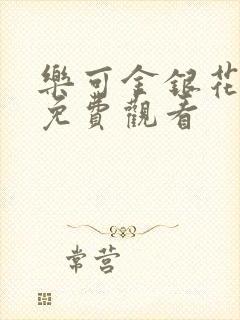 樂可金銀花
免費觀看
常营